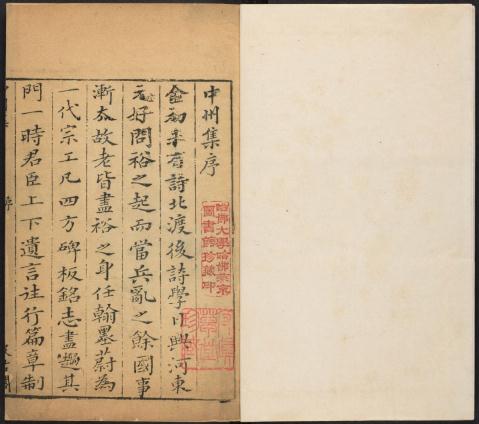 中州集序
金初未有詩北渡後詩學日興河東
元好問裕之起而當兵亂之餘國事
漸 故老皆盡裕之身任翰墨蔚為
一代宗工凡四方碑板銘志盡趨其
門一時君臣上下遺言往行篇章制
序
哈佛大學哈佛燕京
圖書館珍藏印